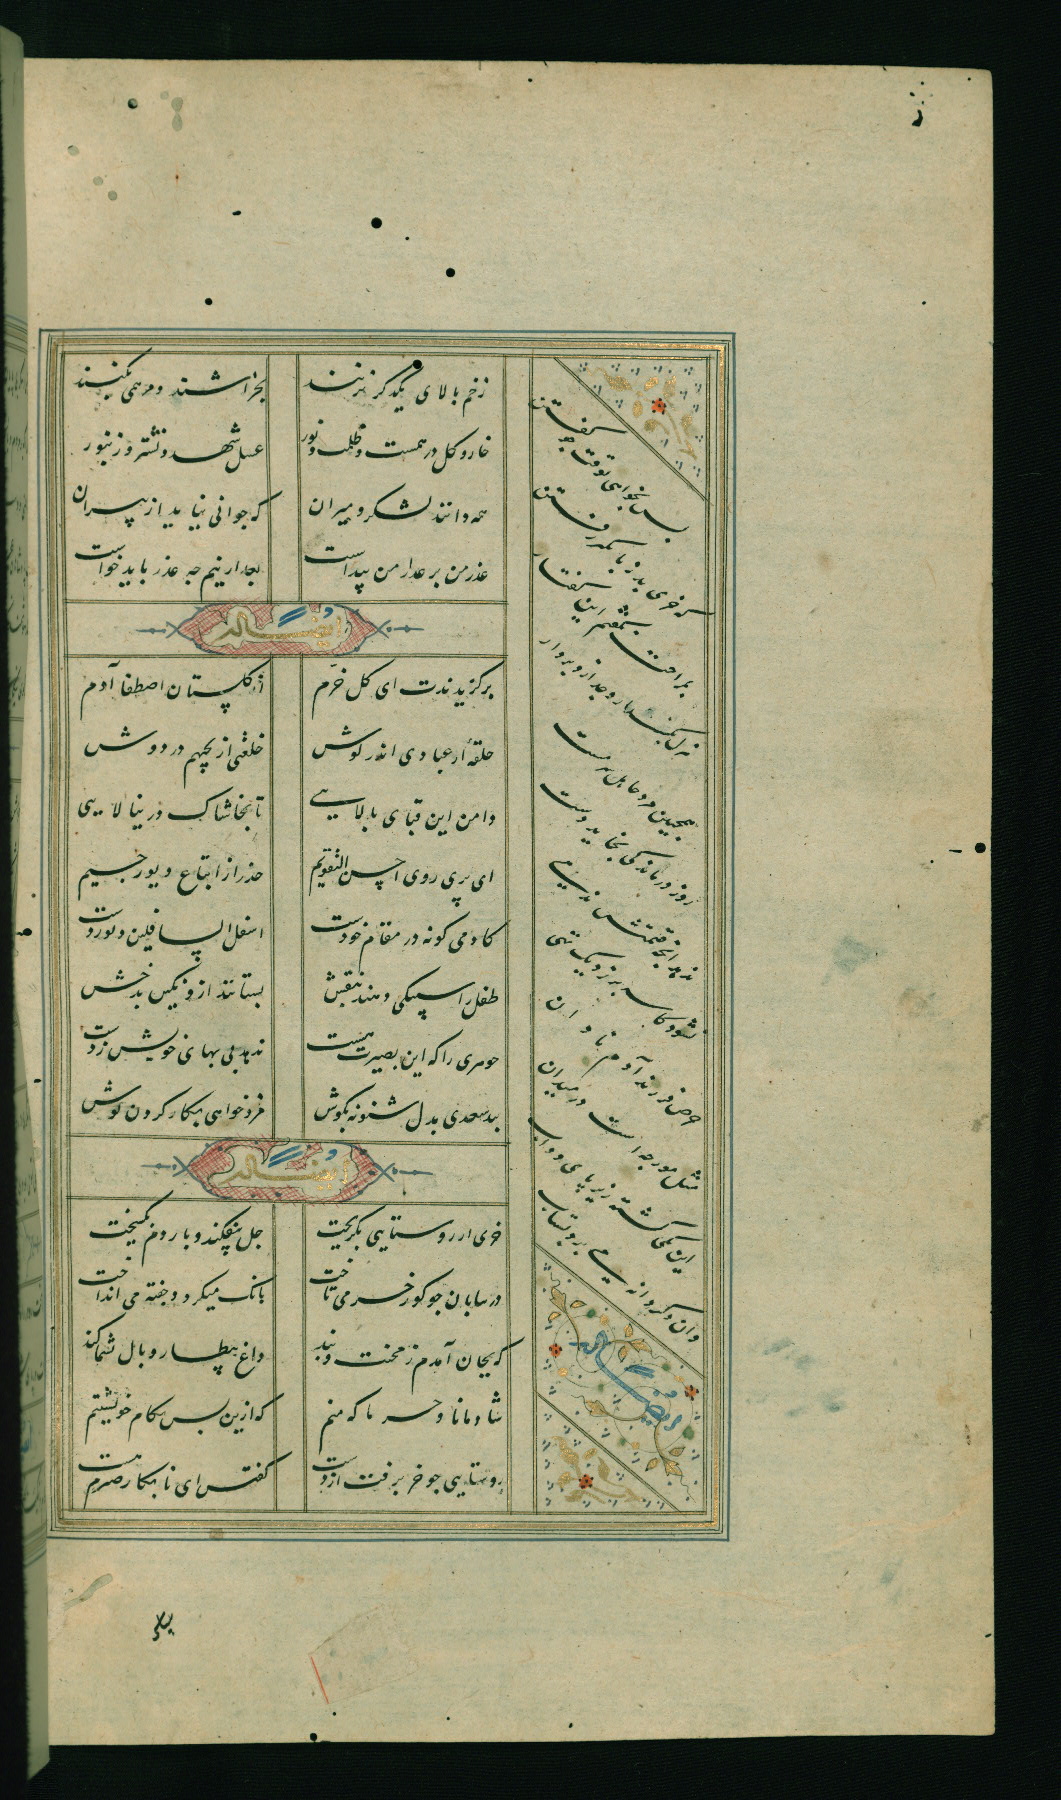 زخم بالای یکدگر نزنند بخراشند و مرهمی نکنند
خار و گل درهمست و ظلمت و نور عسل شهد و نشتر و زنبور
همه دانند لشکر و میران که جوانی نیاید از پیران
عذر من بر عذار من پیداست بعد ازینم چه عذر باید خواست
ایضاً له
برگزیدندت ای گل خرم از گلستان اصطفا آدم
حلقهٔ از عبادی اندر گوش خلعتی از یحبهم در دوش
دامن این قبای بالایی تا بخاشاک در نیالایی
ای پری روی احسن التقویم حذر از اتباع دیو رجیم
کادمی گونه در مقام خودست اسفل السافلین دیو و ددست
طفل را سیبکی دهند بنقش بستانند ازو نگین بدخش
جوهری را که این بصیرت نیست ندهد بی بهای خویش ز دست
پند سعدی بدل شنو نه بگوش مزد خواهی بکار کردن کوش
ایضاً له
خری از روستایی بگریخت جل بیفکند و پاردم بگسیخت
در بیابان چو گور خر می تاخت بانگ میکرد و جفته می انداخت
که بجان آمدم ز محنت و بند داغ و بیطار و بار پشماکند
شادمانا و خرما که منم که ازین پس بکام خویشتنم
روستایی چو خر برفت از دست گفت ای نابکار صبرم هست
پس بخواهی بوقت جو گفتن
که خری بد ز پایگه رفتن
بمزاحت نگفتم این گفتار
هزل بگذار و جد ازو بردار
همچنین مرد جاهل سرمست
روز درماندگی بخاید دست
ندهد آنچه قیمتش ندهیم
نشود کاسه پر ز دیگ تهی
حرص فرزند آدم نادان
مثل مورچه است در میدان
این یکی گشته زیر پای دواب
وان دگر دانه میبرد بشتاب
ایضاً له